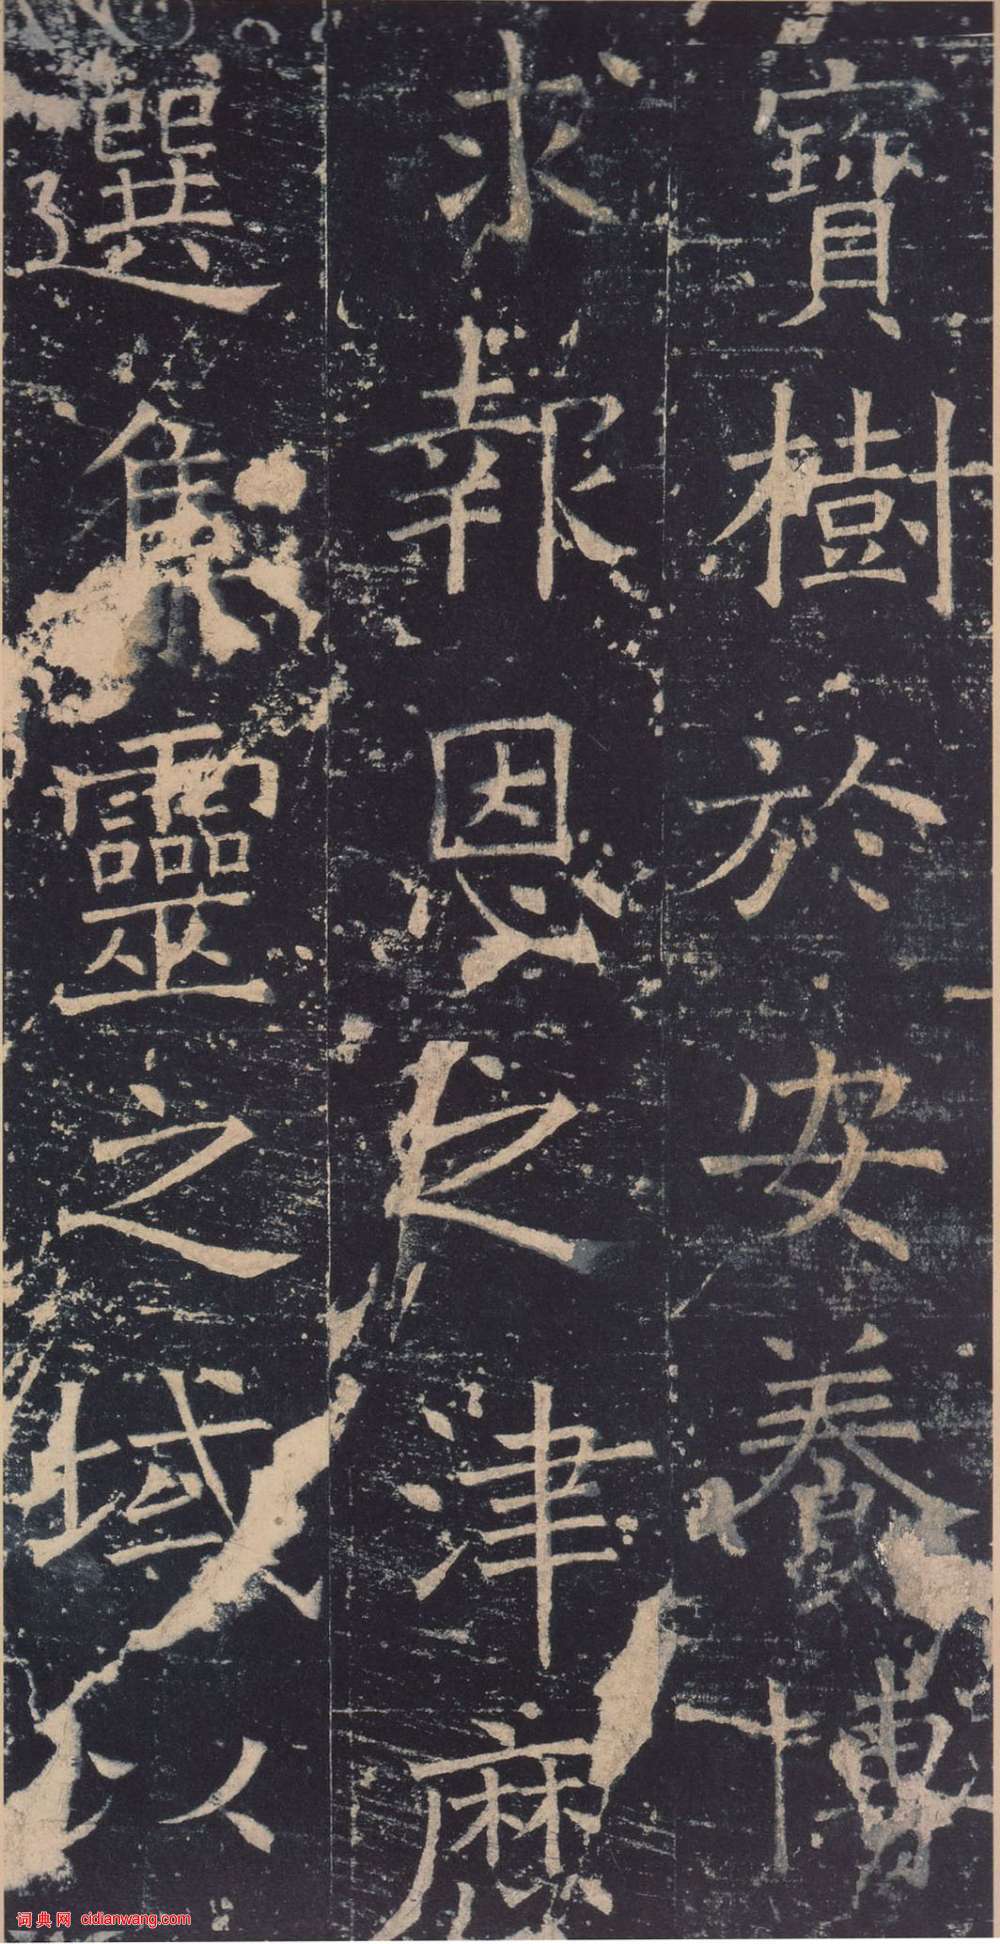 寶樹於安養博
求報恩之津麻
選集靈之域以
词典网 cidianwang.com